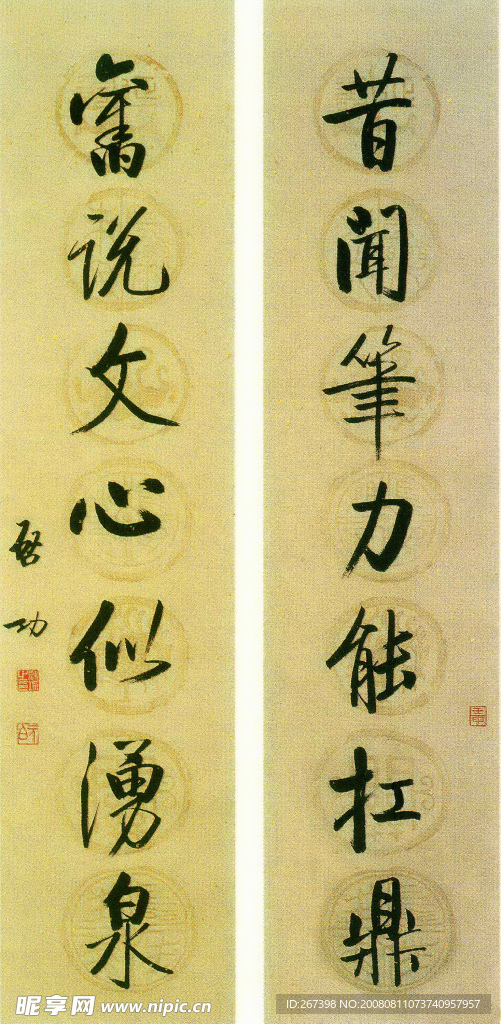 昔闻筆力能扛鼎
舊说文心似湧泉
启功
昵享网 www.nipic.cn
ID:267398 NO:20080811073740957957